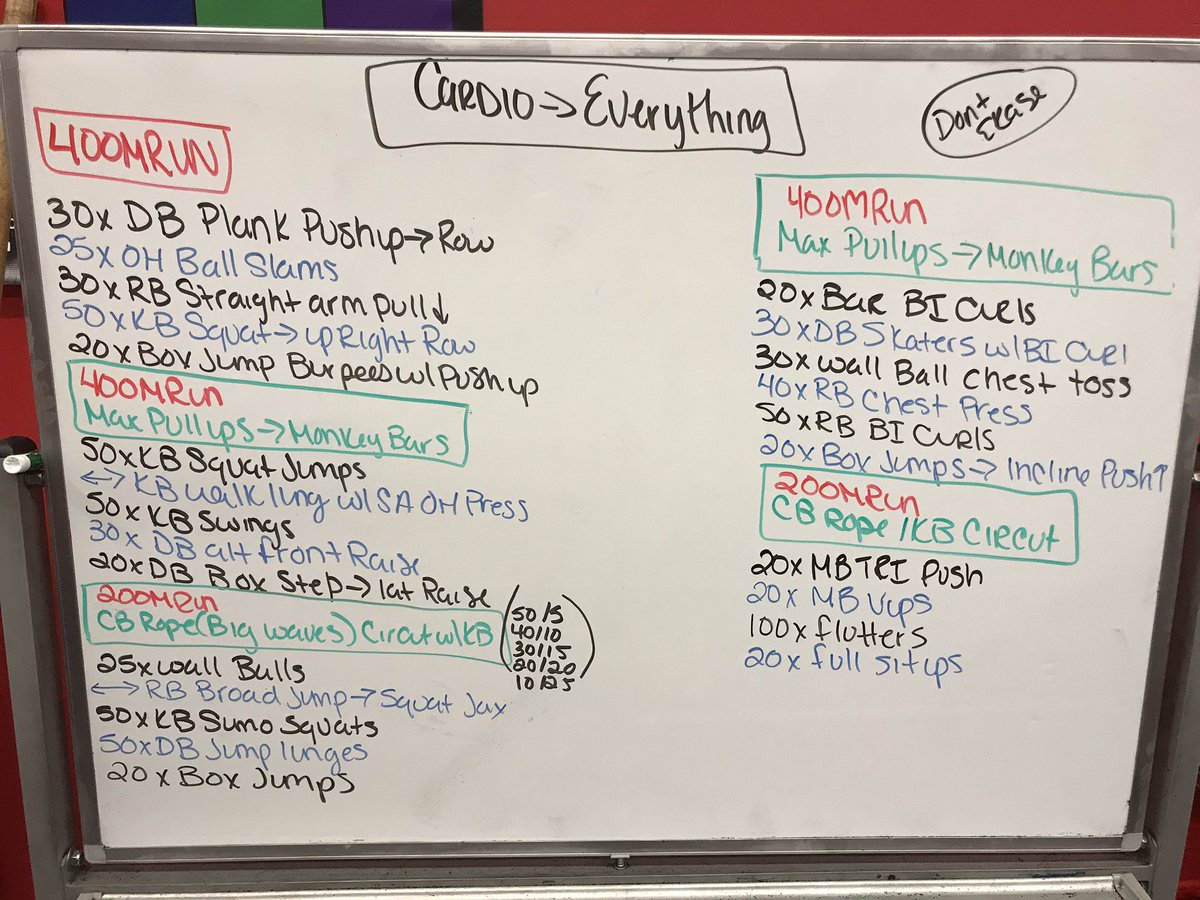 CARDIO → Everything
Dont
Erase
400MRUN
30x DB Plank Pushup → Row
25x OH Ball Slams
30x RB Straight arm pull↓
50x KB Squat → upRight Row
20x Box Jump Burpees w/ Push up
400MRun
Max Pullups → Monkey Bars
50x KB Squat Jumps
←→ KB walk lung w/ SA OH Press
50x KB Swings
30x DB alt front Raise
20x DB Box Step → lat Raise
200MRun
CB Rope (Big waves) Circut w/ KB
50/5
40/10
30/15
20/20
10/25
25x wall Balls
←→ RB Broad Jump → Squat Jax
50x KB Sumo Squats
50x DB Jump lunges
20x Box Jumps
400MRun
Max Pullups → Monkey Bars
20x Bar BI Curls
30x DB Skaters w/ BI Curl
30x wall Ball Chest toss
40x RB Chest Press
50x RB BI Curls
20x Box Jumps → Incline Push↑
200MRun
CB Rope / KB Circut
20x MB TRI Push
20x MB Vups
100x flutters
20x full situps